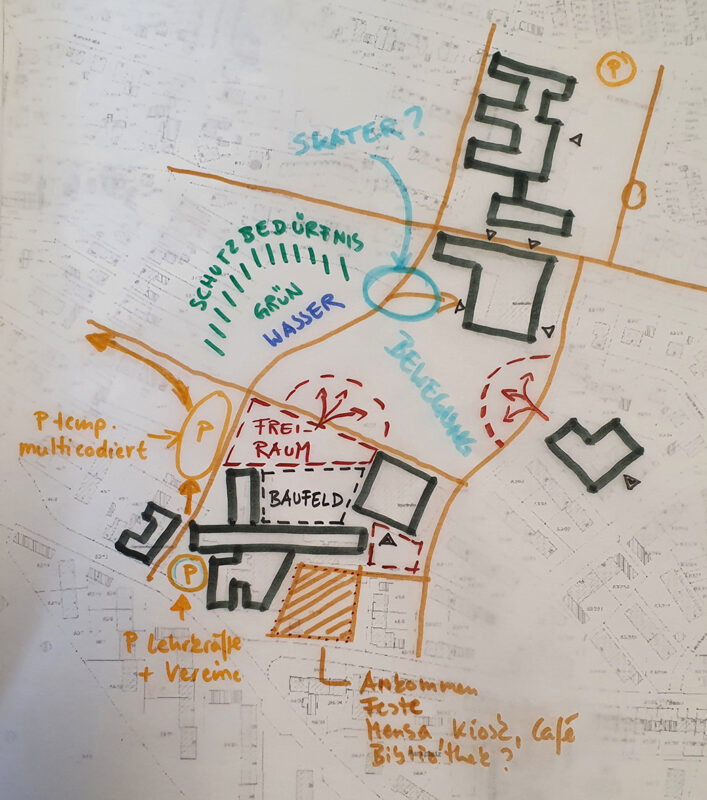 P
SKATER?
SCHUTZBEDÜRFNIS
GRÜN
WASSER
BEWEGUNG
P temp.
multicodiert
P
FREI-
RAUM
BAUFELD
P
P Lehrkräfte
+ Vereine
Ankommen
Feste
Mensa Kiosk, Café
Bibliothek?